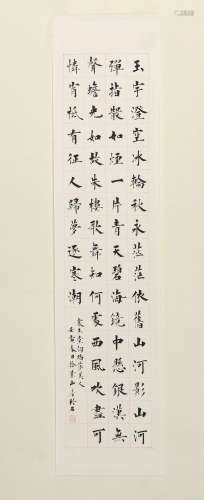 玉宇澄空冰輪秋永茫茫依舊山河影山河
彈指散如煙一片青天碧海鏡中懸銀漢無
聲蟾光如故朱樓歌舞知何處西風吹盡可
憐宵有征人歸夢逐寒潮
美人